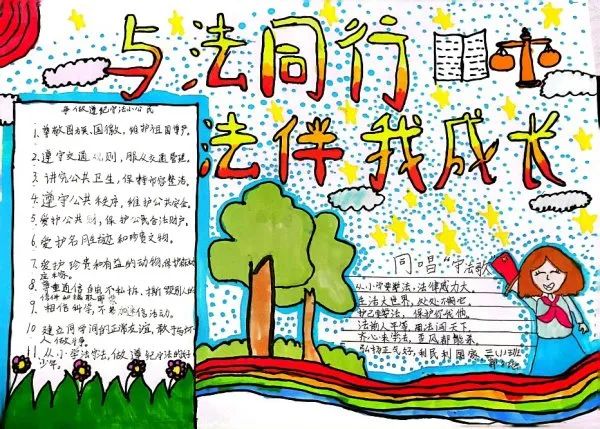 与法同行
法伴我成长
争做遵纪守法小公民
1. 尊敬国旗、国徽，维护祖国尊严。
2. 遵守交通规则，服从交通管理。
3. 讲究公共卫生，保持市容整洁。
4. 遵守公共秩序，维护公共安全。
5. 爱护公共财，保护公民合法财产。
6. 爱护名胜古迹和珍贵文物。
7. 爱护珍贵和有益的动物，保护
8. 尊重通信自由不私拆、
9. 相信科学，不 迷信活动。
10. 建立同学间的正常友谊，敢于与坏
人做斗争。
11. 从小学法守法，做遵纪守法的好
少年。
同唱“守法歌”
从小学法，法律威力大。
生活大世界，处处不离它。
护己靠法，保护你我他。
法纳人平等，用法闯天下。
齐心来学法，
弘扬正气好，利民利国家
三（1）班